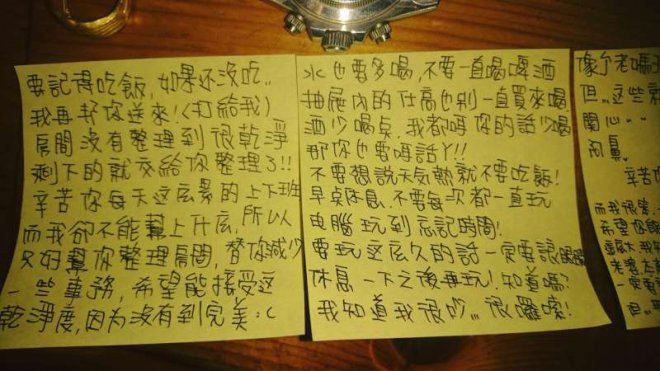 要記得吃飯,如果还沒吃..
我再幫你送來!(打給我)
房間沒有整理到很乾淨
剩下的就交給你整理了!!
辛苦你每天这庅累的上下班
而我卻不能幫上什庅,所以
只好幫你整理房間,替你減少
一些事務,希望能接受这
乾淨度,因为沒有到完美:c
水也要多喝,不要一直喝啤酒
抽屜內的仕高也別一直買來喝!
酒少喝点.我都听你的話少喝
那你也要听話丫!!
不要想說天气熱就不要吃飯!
早点休息.不要每次都一直玩
电腦玩到忘記時間!
要玩这庅久的話一定要讓眼睛
休息一下之後再玩!知道嗎?
我知道我很吵...很囉嗦!
像个老媽子
但...这些
関心..
辛苦
而我很
希望你
一定要
但...